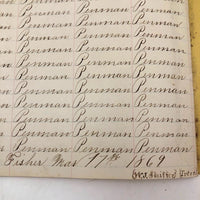 Penman Penman Penman
Penman Penman Penman
Penman Penman Penman Penman
Penman Penman Penman Penman
Penman Penman Penman Penman
Penman Penman Penman Penman
Penman Penman Penman Penman
Penman Penman Penman Penman
Penman Penman Penman Penman
Penman Penman Penman Penman
Fisher Mar 17th 1869